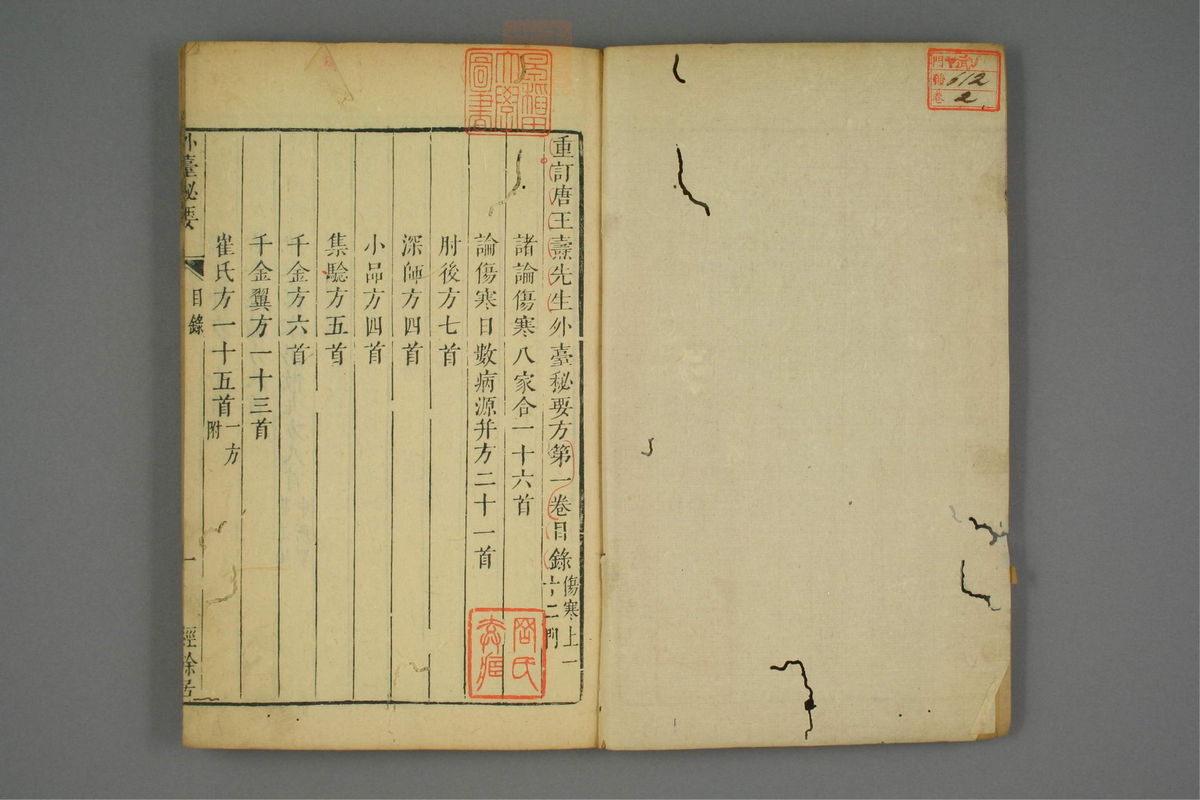 門
號 612
卷 2
重訂唐王燾先生外臺秘要方第一卷目錄 傷寒上一十二門
諸論傷寒八家合一十六首
論傷寒日數病源并方二十一首
肘後方七首
深師方四首
小品方四首
集驗方五首
千金方六首
千金翼方一十三首
崔氏方一十五首 一方附
外臺秘要
目錄
一
經餘居
早稻田大學圖書